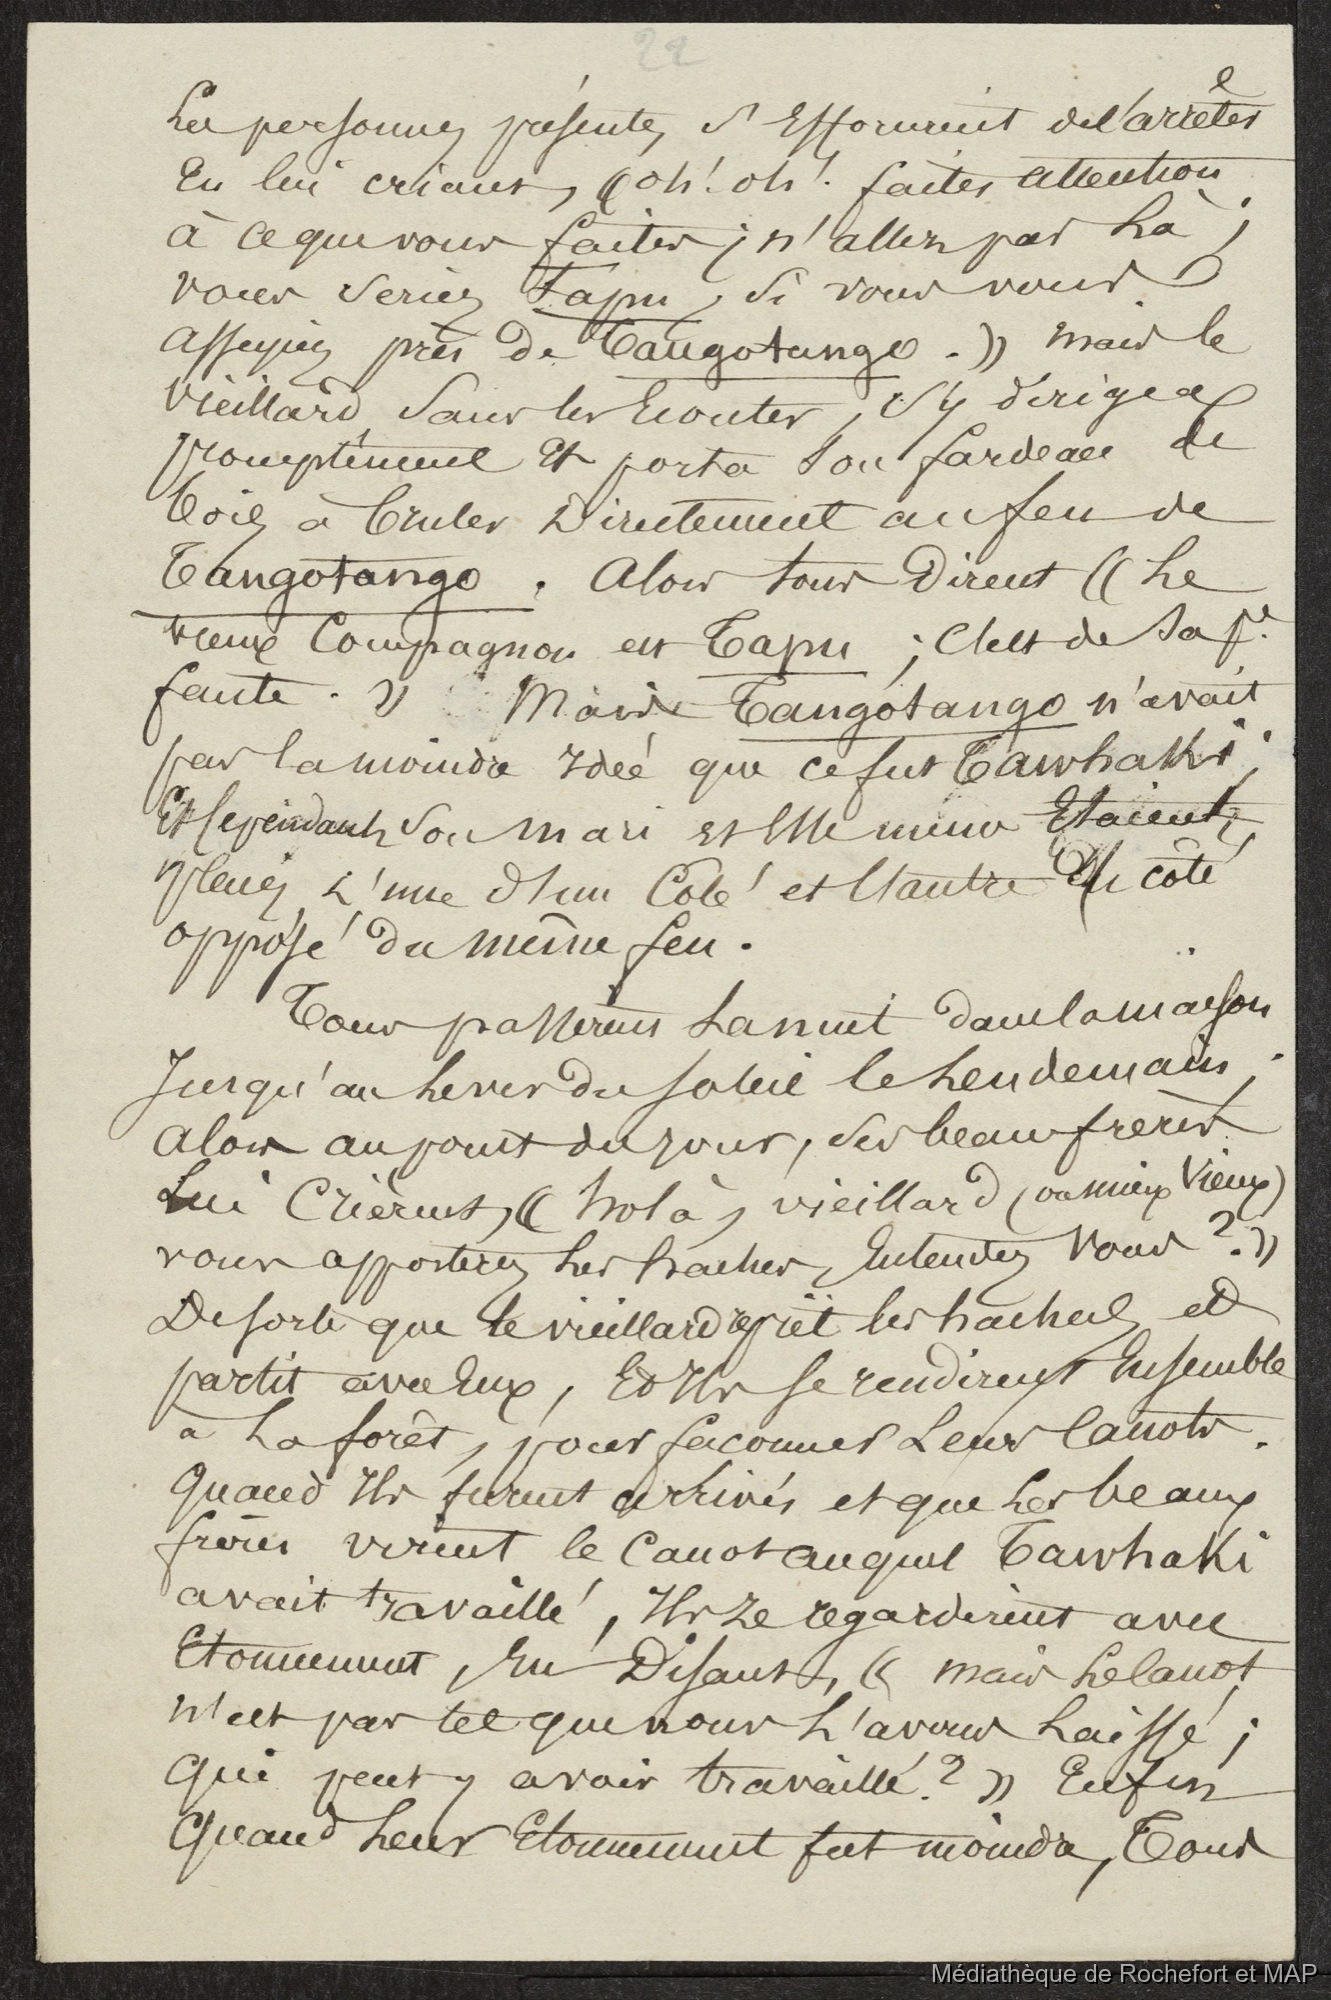 22
Les personnes présentes s'Efforcèrent de l'arrêter
En lui criant, « oh! oh! faites attention
à ce que vous faites ; n'allez pas Là ;
vous seriez Tapu, si vous vous
asseyiez près de Tangotango. » mais le
Vieillard, sans les Ecouter, s'y dirigea
promptement Et porta son fardeau de
bois à bruler Directement au feu de
Tangotango. Alors tous Dirent « Le
vieux Compagnon est Tapu ; C'est de sa pre
faute. » Mais Tangotango n'avait
pas la moindre Idée que ce fut Tawhaki ;
Et Cependant son mari et Elle même Etaient
placés L'une d'un Coté et l'autre du côté
opposé du même feu.
Tous passèrent La nuit dans la maison
Jusqu'au Lever du Soleil le Lendemain ;
alors au point du jour, ses beaux frères
Lui Crièrent, « holà, vieillard (ou mieux Vieux)
vous apporterez Les haches, Entendez Vous ?. »
De sorte que le vieillard prit les haches et
partit avec Eux, Et Ils se rendirent Ensemble
à La forêt, pour façonner Leurs Canots.
Quand Ils furent arrivés et que Les beaux
frères virent le Canot auquel Tawhaki
avait travaillé, Ils Le regardèrent avec
Etonnement, En Disant, « mais Le Canot
n'est pas tel que nous L'avons Laissé ;
Qui peut y avoir travaillé ? » Enfin
Quand Leur Etonnement fut moindre, Tous
Médiathèque de Rochefort et MAP